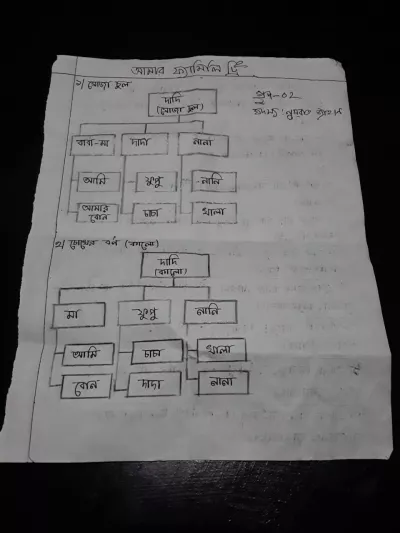 আমার ফ্যামিলি ট্রি
১/ সোজা চুল
গ্রুপ-০২
দাদি
(সোজা চুল)
বাবা-মা
দাদা
নানা
আমি
ফুপু
নানি
আমার
বোন
চাচা
খালা
২/ চোখের বর্ণ (কালো)
দাদি
(কালো)
মা
ফুপু
নানি
আমি
চাচা
খালা
বোন
দাদা
নানা